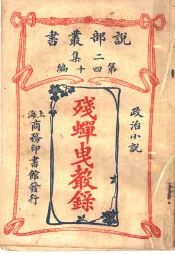 說部叢書
第二集四十編
政治小說
殘蟬曳聲錄
上海商務印書館發行